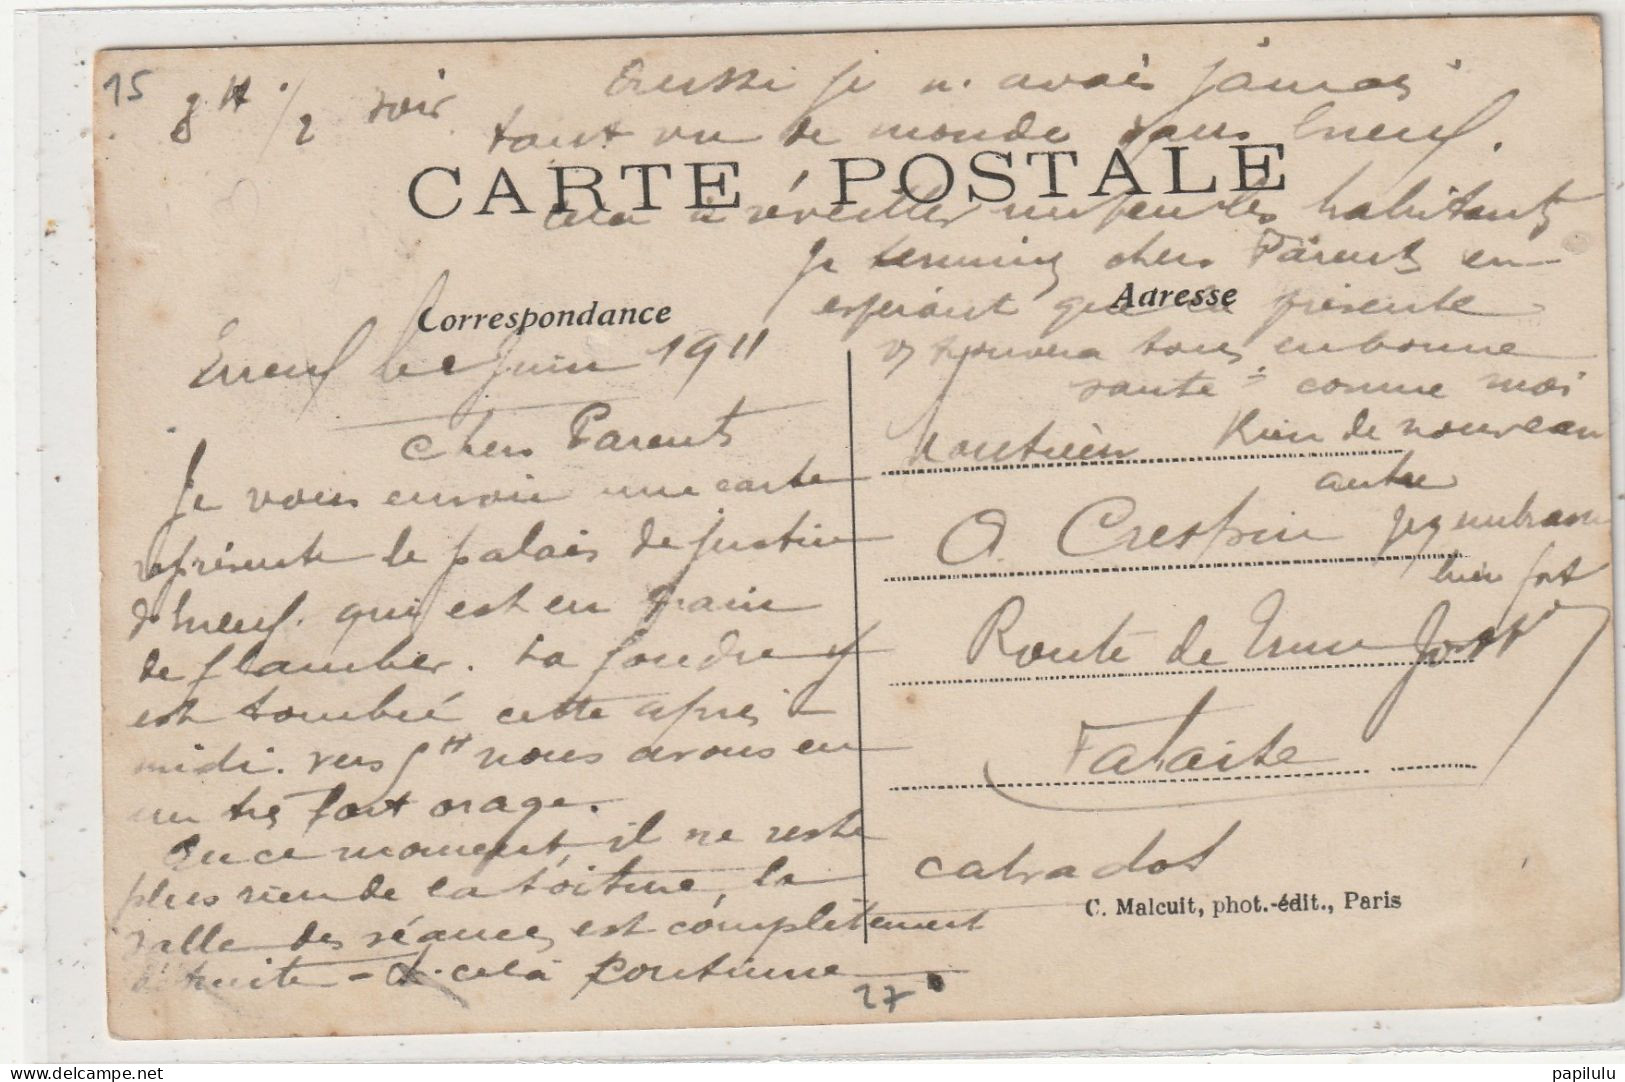 15
8 H 1/2 soir
Aussi je n'avais jamais
tant vu de monde dans Bneuf.
CARTE POSTALE
cela à réveiller un peu les habitants
Je termine chers Parents en
espérant que la présente
Correspondance
Adresse
vs trouvera tous en bonne
santé comme moi
Bneuf le Juin 1911
Chers Parents
Rien de nouveau
autre
Je vous envoie une carte
représente le palais de justice
de Bneuf. qui est en train
de flamber. La foudre y
est tombée cette après
midi. vers 5H nous avons eu
un très fort orage.
En ce moment il ne reste
plus rien de la toiture, la
salle des séances est complètement
détruite - & cela continue
A. Crespin
Je vs embrasse
bien fort
Route de Trun
Falaise
calvados
C. Malcuit, phot.-édit., Paris
27
papilulu
delcampe.net